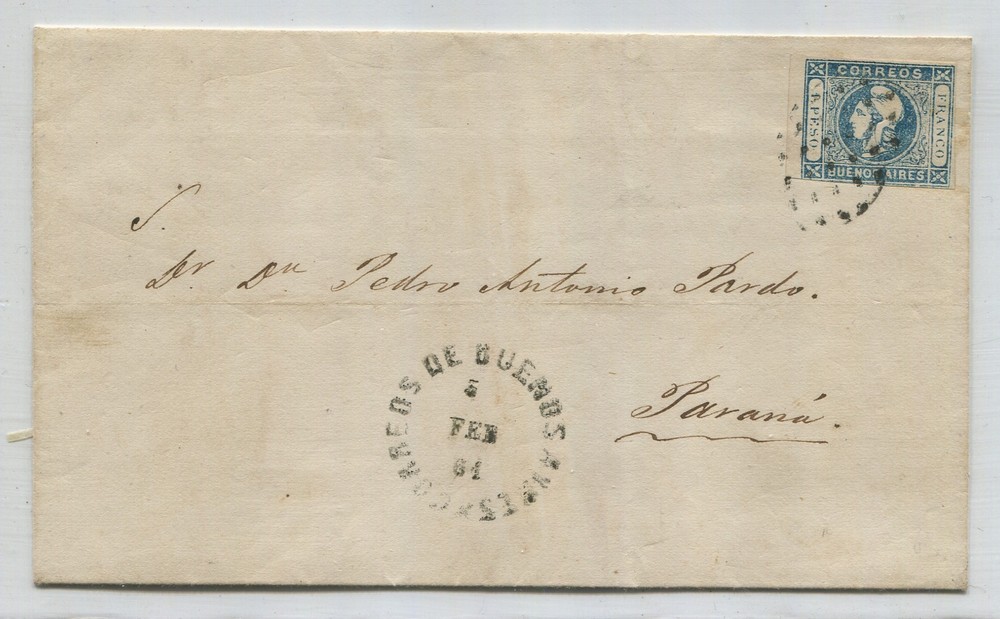 CORREOS
1 PESO
FRANCO
BUENOS AIRES
S.
Dr. Dn Pedro Antonio Pardo.
Paraná.
CORREOS DE BUENOS AYRES
5
FEB
61